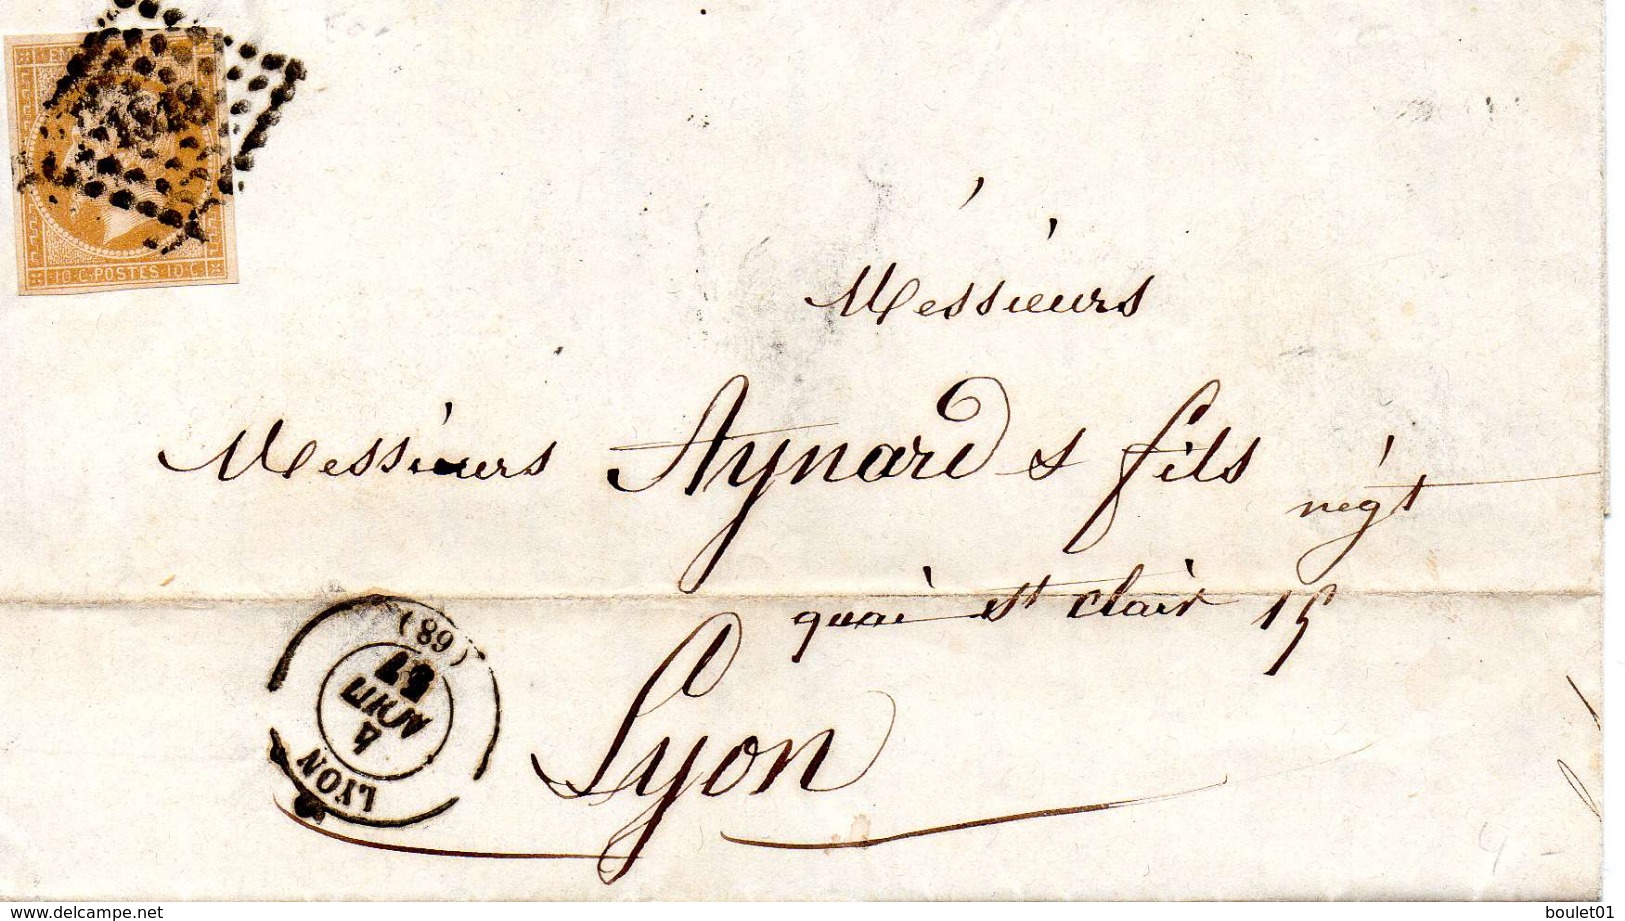 EMP
10·C·POSTES·10·C
1818
Messieurs
Messieurs Aynard & fils négt
quai st clair 15
Lyon
LYON
4
AVRIL
57
(68)
www.delcampe.net
boulet01